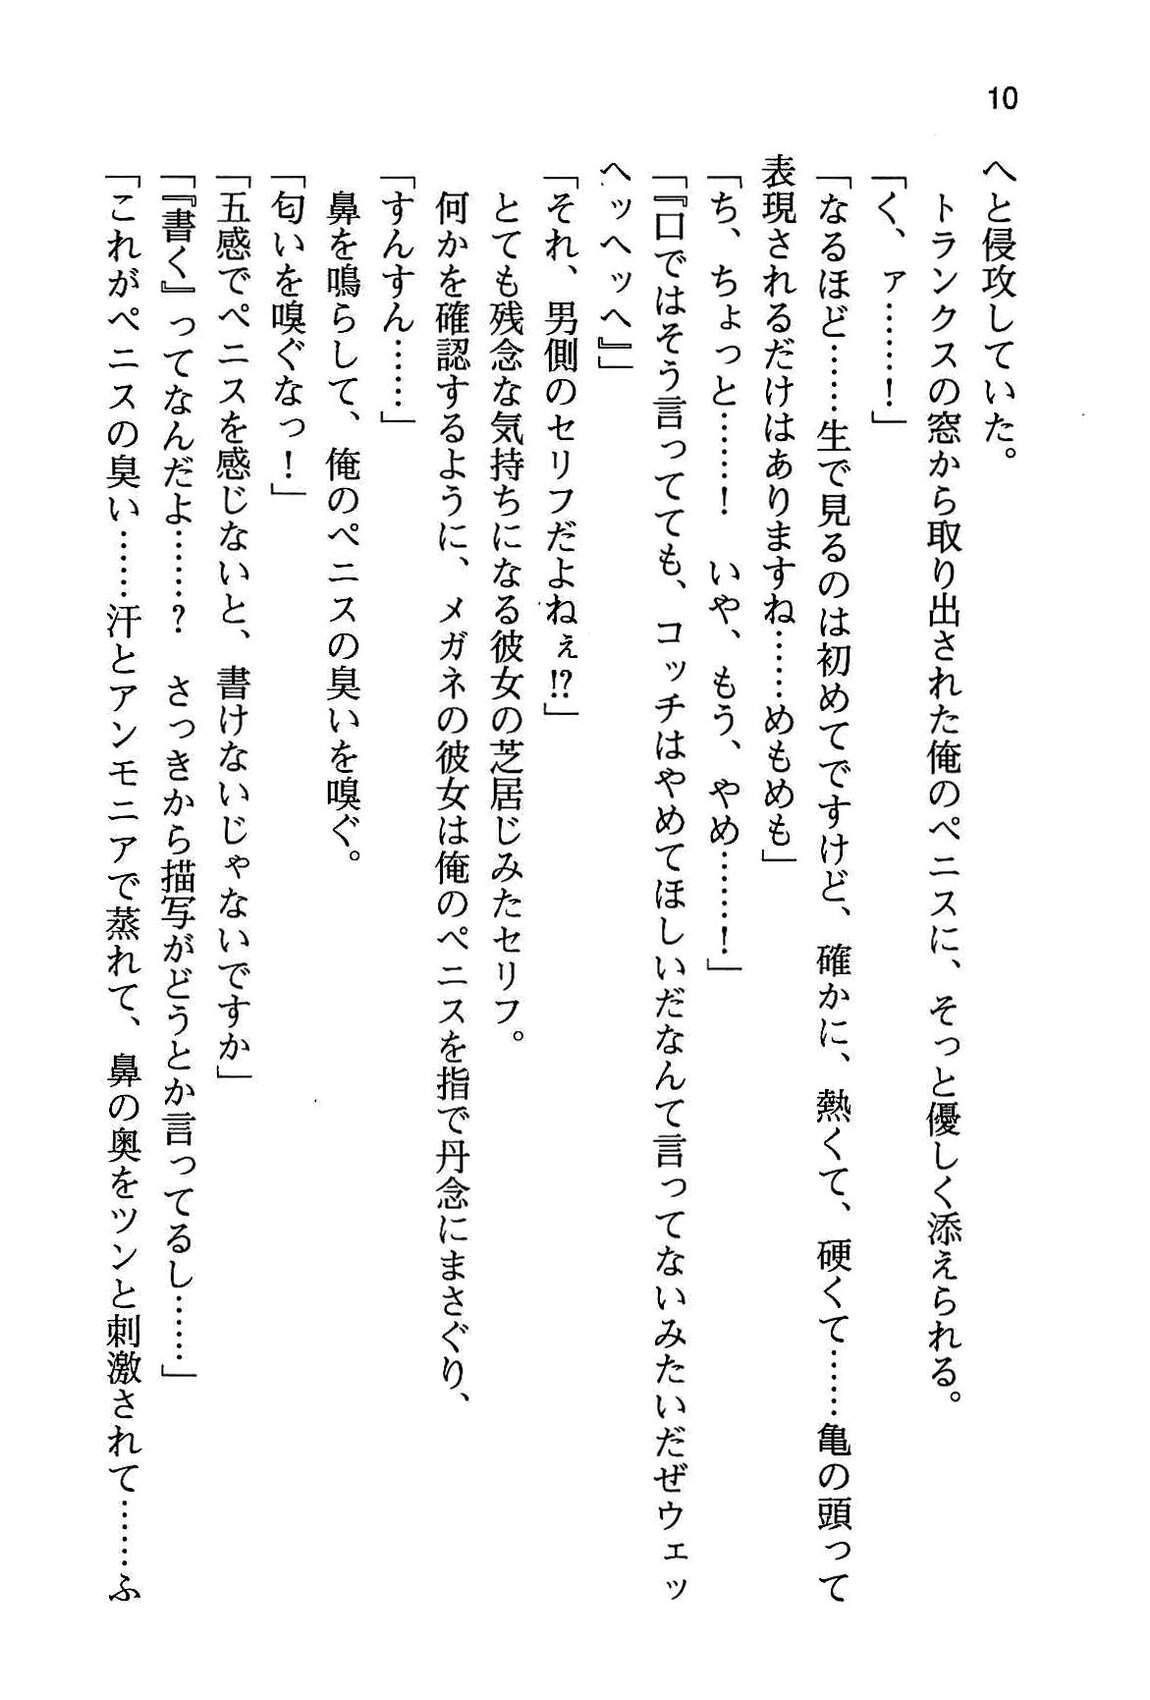 10
へと侵攻していた。
トランクスの窓から取り出された俺のペニスに、そっと優しく添えられる。
「く、ァ………！」
「なるほど……生で見るのは初めてですけど、確かに、熱くて、硬くて……亀の頭って
表現されるだけはありますね……めもめも」
「ち、ちょっと……！　いや、もう、やめ………！」
「『口ではそう言ってても、コッチはやめてほしいだなんて言ってないみたいだぜウェッ
ヘッヘッヘ』」
「それ、男側のセリフだよねぇ!?」
とても残念な気持ちになる彼女の芝居じみたセリフ。
何かを確認するように、メガネの彼女は俺のペニスを指で丹念にまさぐり、
「すんすん……」
鼻を鳴らして、俺のペニスの臭いを嗅ぐ。
「匂いを嗅ぐなっ！」
「五感でペニスを感じないと、書けないじゃないですか」
「『書く』ってなんだよ……？　さっきから描写がどうとか言ってるし……」
「これがペニスの臭い……汗とアンモニアで蒸れて、鼻の奥をツンと刺激されて……ふ